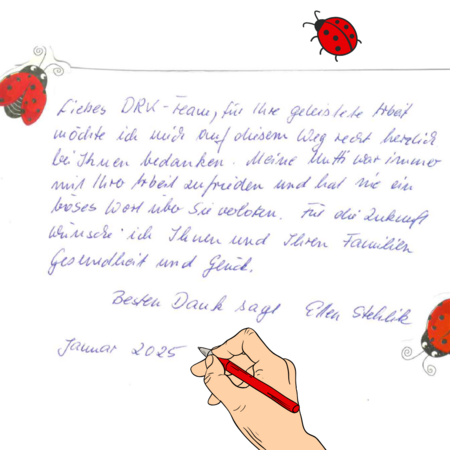 Liebes DRK-Team, für Ihre geleistete Arbeit
möchte ich mich auf diesem Weg recht herzlich
bei Ihnen bedanken. Meine Mutti war immer
mit Ihrer Arbeit zufrieden und hat nie ein
böses Wort über Sie verloren. Für die Zukunft
wünsche ich Ihnen und Ihren Familien
Gesundheit und Glück.
Besten Dank sagt Ellen Stehlik
Januar 2025